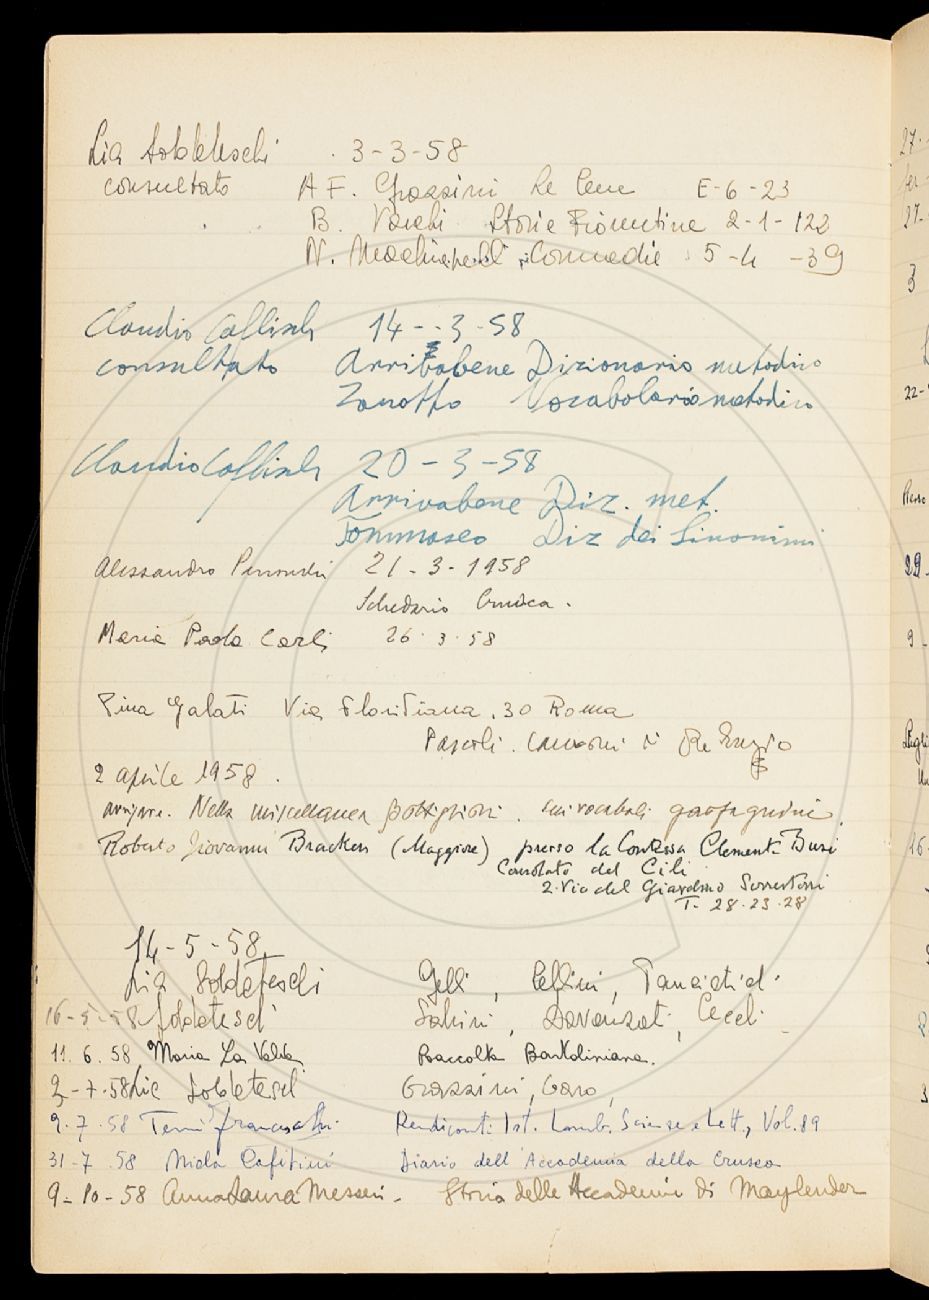 Lia Soldateschi 3-3-58
consultato A F. Grazzini Le Cene E-6-23
B. Varchi Storie Fiorentine 2-1-122
N. Machiavelli Commedie 5-4-39
Claudio Caflisch 14--3-58
consultato Arrivabene Dizionario metodico
Zanotto Vocabolario metodico
Claudio Caflisch 20-3-58
Arrivabene Diz. met.
Tommaseo Diz dei Sinonimi
Alessandro 21-3-1958
Schedario Crusca.
Maria Paola Carli 26.3.58
Pina Galati Via Floridiana, 30 Roma
Pascoli. Canzoni di Re Enzio
2 aprile 1958.
Nella miscellanea Bottiglioni. sui vocaboli garfagnini.
Roberto Giovanni Bracken (Maggiore) presso la Contessa Clementi Busi
Consolato del Cili
2. Via del Giardino Serristori
T. 28.23.28
14-5-58
Lia Soldateschi Gelli, Cellini, Panciatichi
16-5-58 Soldateschi Salvini, Davanzati, Cecchi
11.6.58 Maria La Valva Raccolta Bartoliniana.
2-7-58 Lia Soldateschi Grazzini, Caro,
9.7.58 Rendiconti Ist. Lomb. Scienze e Lett., Vol. 89
31-7 58 Diario dell'Accademia della Crusca
9-10-58 Anna Laura Messeri - Storia delle Accademie di Maylender